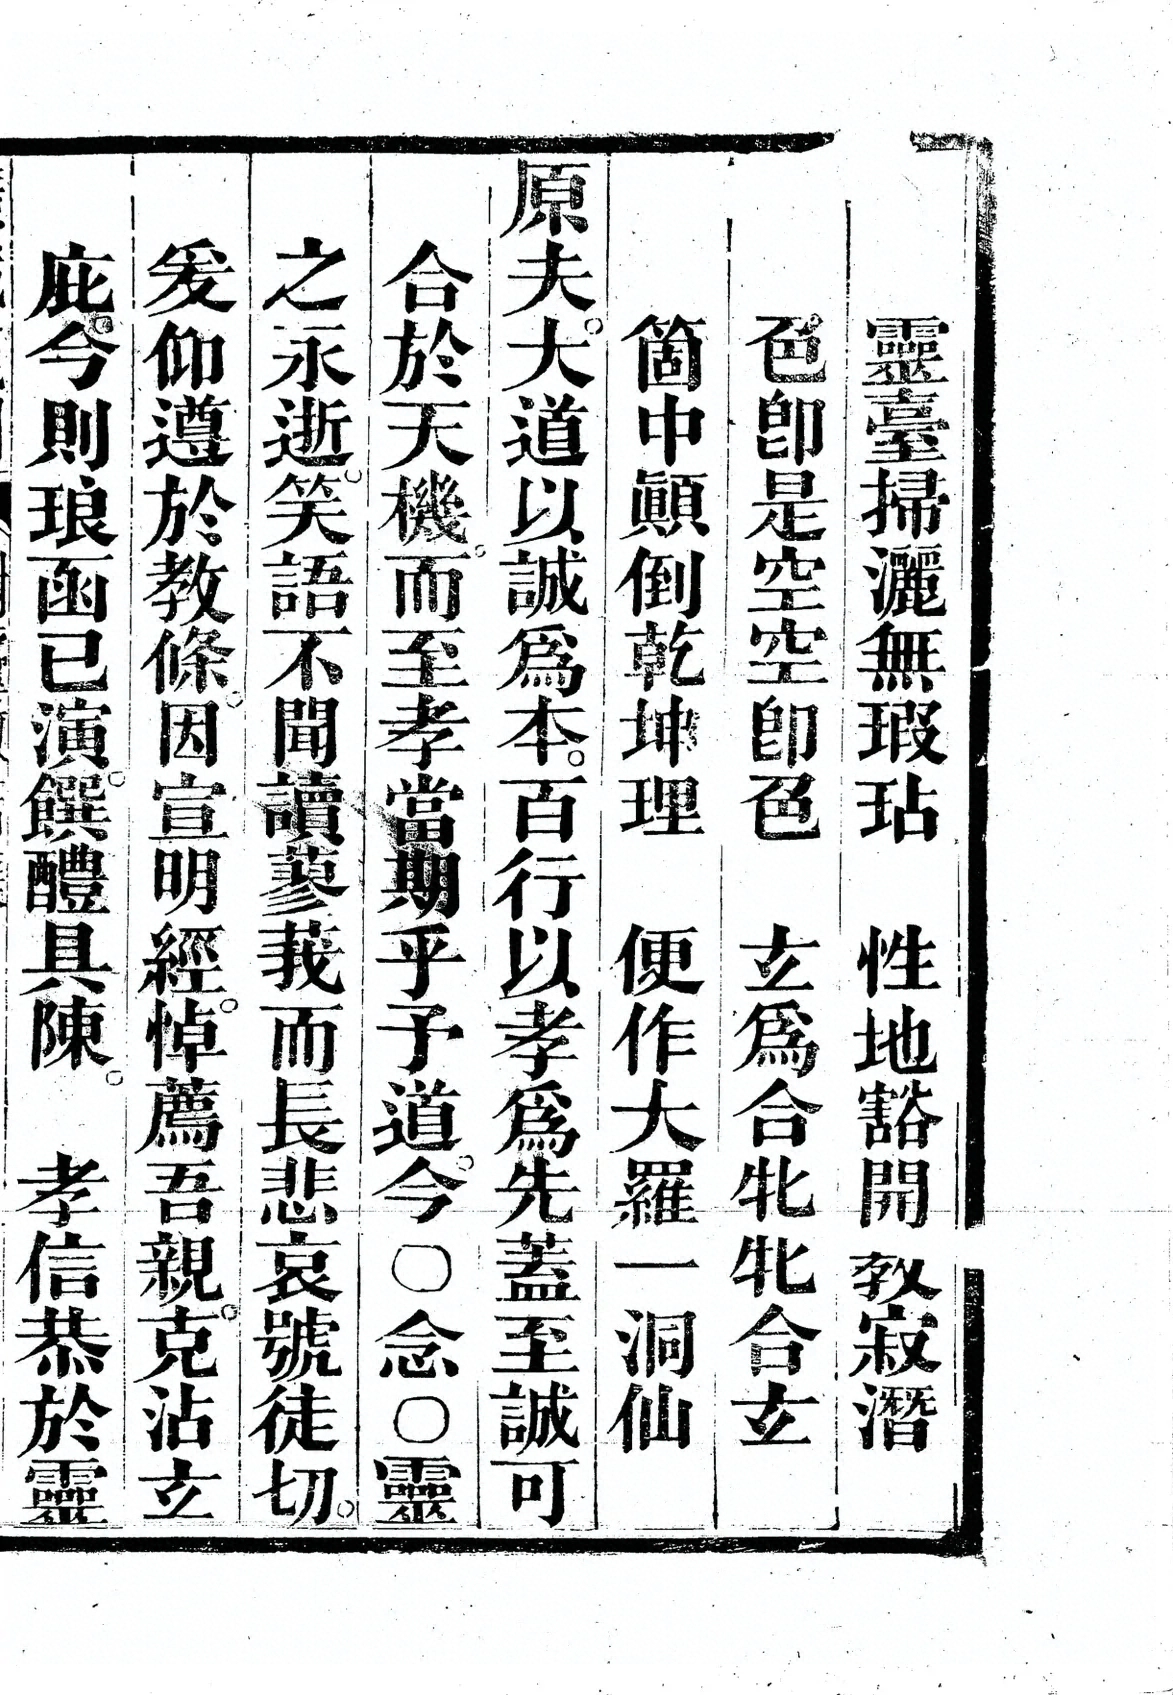 靈臺掃灑無瑕玷　性地豁開教寂潛
色卽是空空卽色　玄爲合牝牝合玄
箇中顚倒乾坤理　便作大羅一洞仙
原夫。大道以誠爲本。百行以孝爲先蓋至誠可
合於天機。而至孝當期乎予道。今○念○靈
之永逝。笑語不聞讀蓼莪而長悲哀號徒切。
爰仰遵於教條。因宣明經。悼薦吾親。克沾玄
庇。今則琅函已演。饌醴具陳。　孝信恭於靈